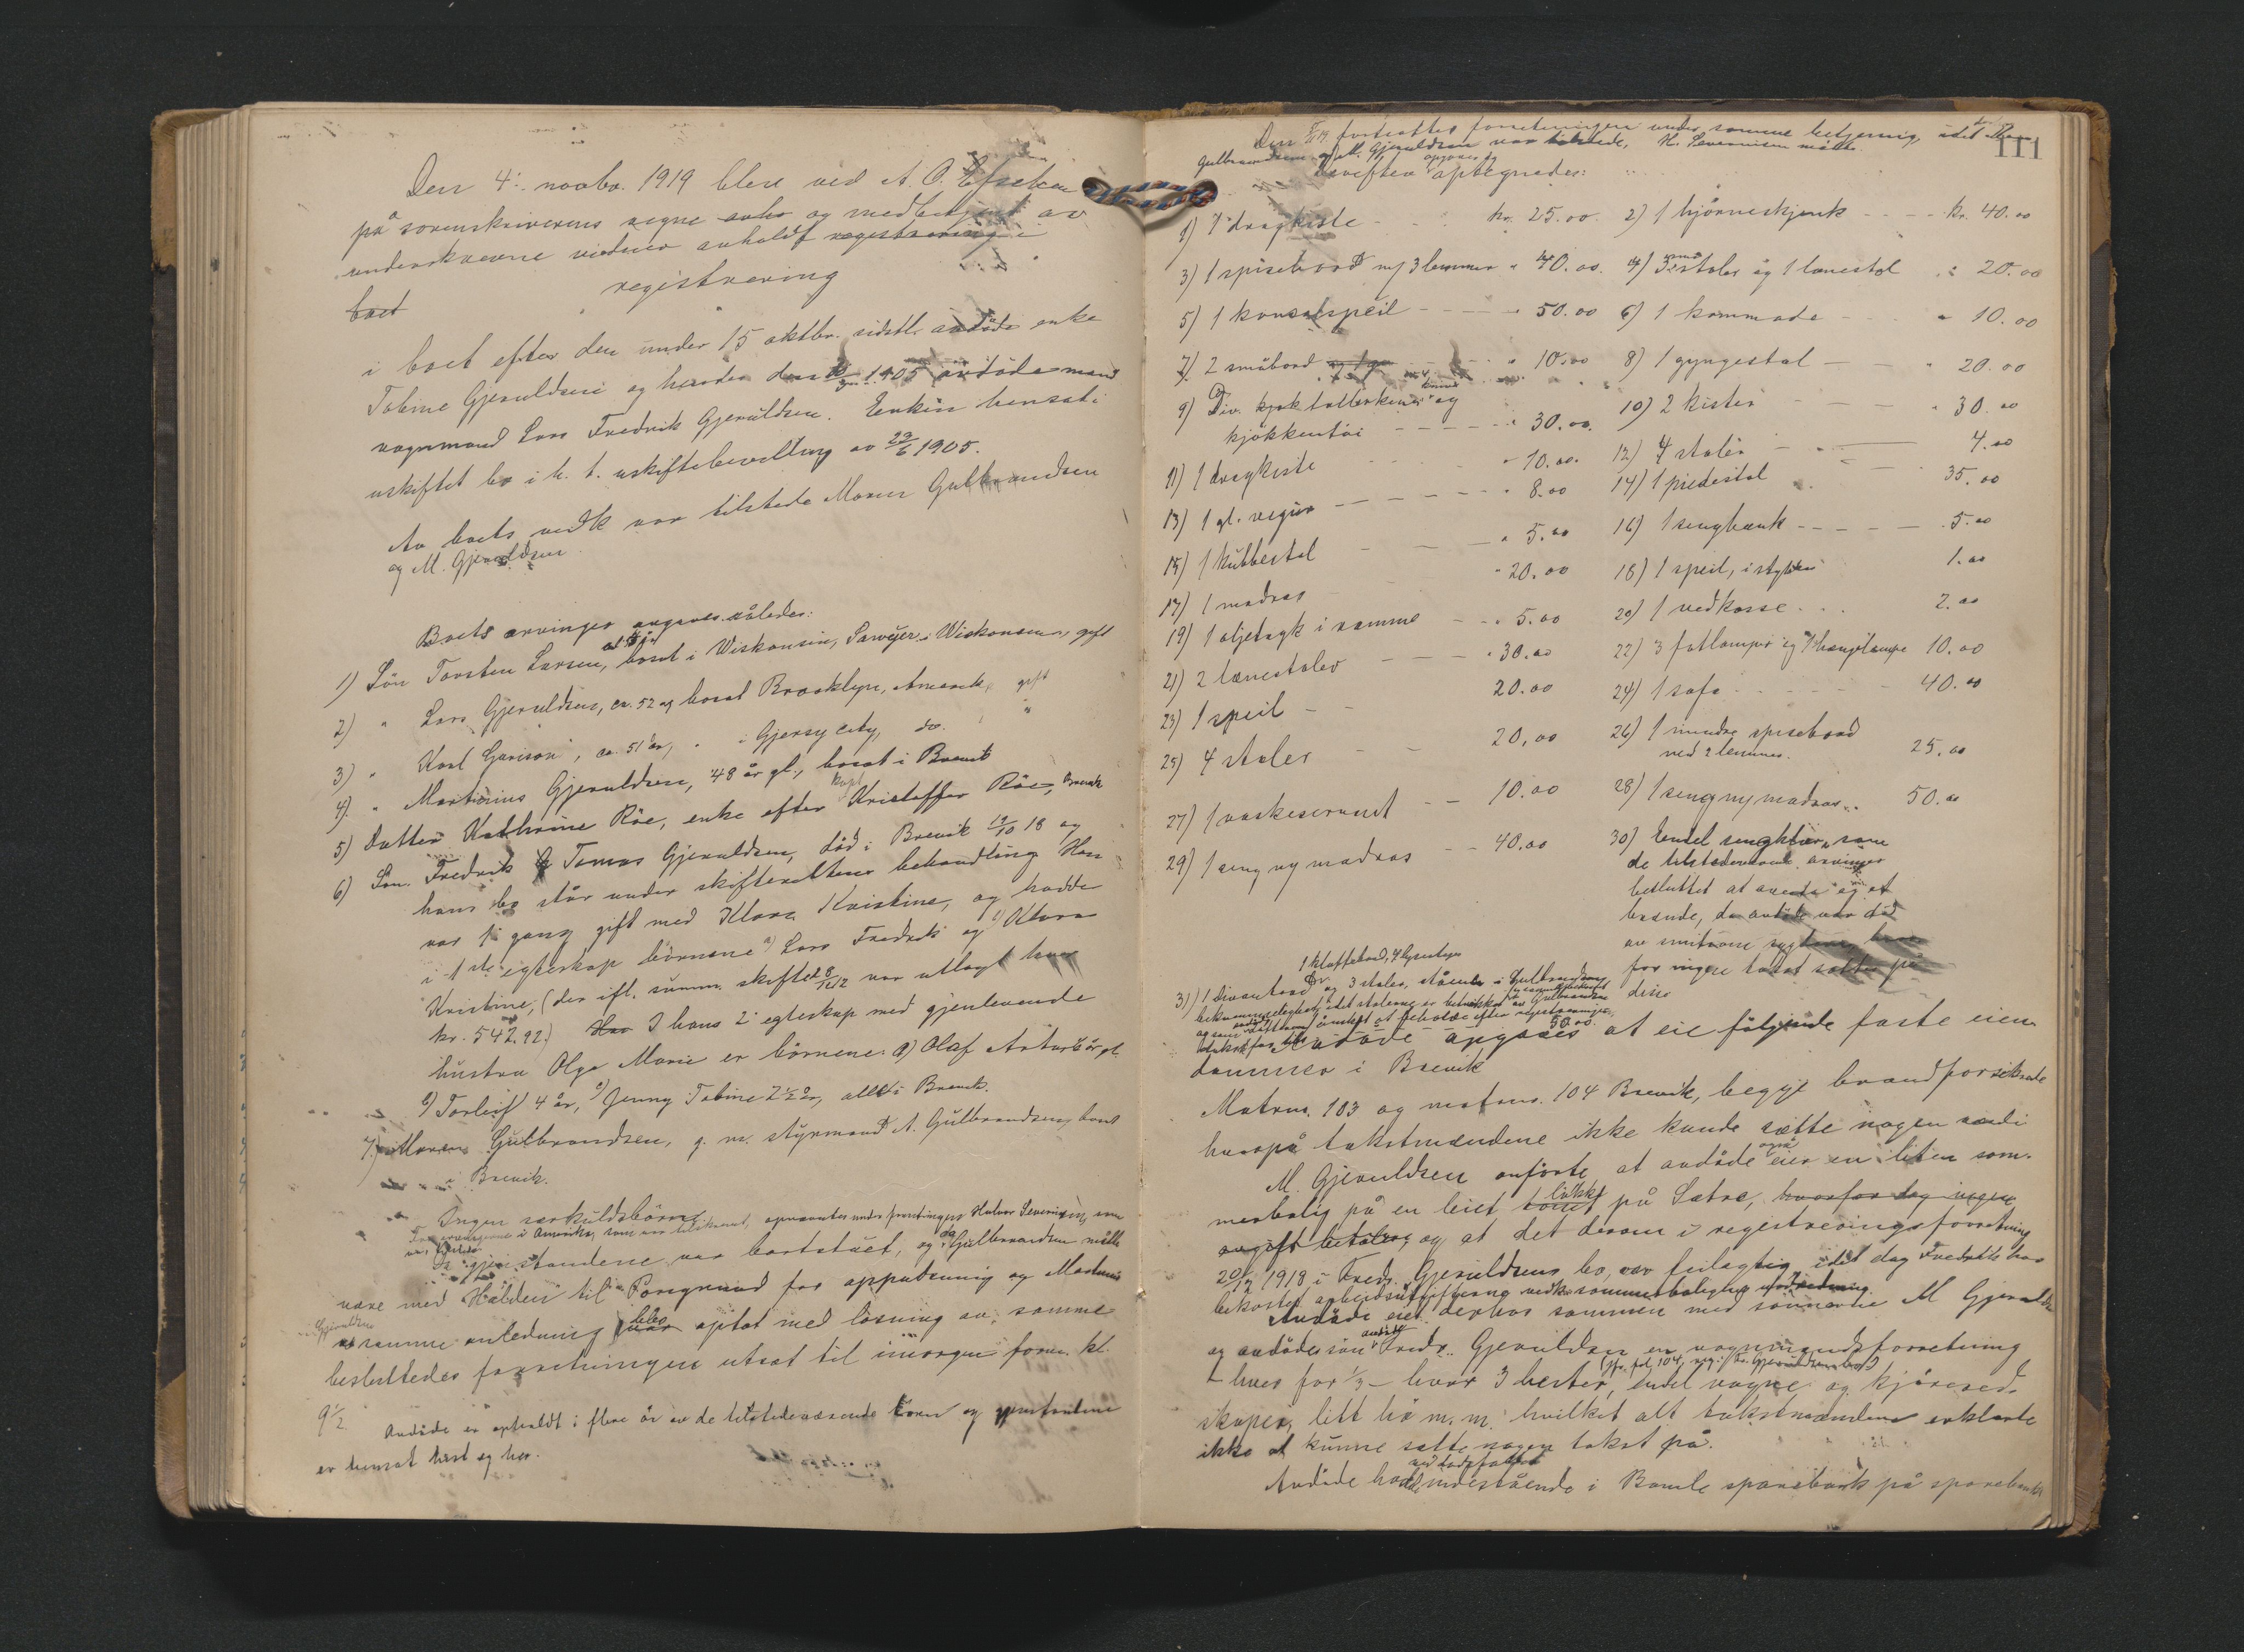 Den 4. novbr. 1919 blev ved A. O.
på sorenskriverens vegne avho og medbetjent av
underskrevne vidner avholdt registrering i
boet registrering
i boet efter den under 15 oktbr. sidstl. avdöde enke
Tobine Gjeruldsen og hendes den 1905 avdöde mand
vognmand Lars Fredrik Gjeruldsen. Enken hensat i
uskiftet bo i h. t. uskiftebevilling av 22/6 1905.
Av boets vedk. var tilstede Maren Gulbrandsen
og M. Gjeruldsen
Boets arvinger opgaves således:
1) Sön Torsten Larsen, bosat i Wiskonsin, Sawyer i Wiskonsin, gift
2) " Lars Gjeruldsen, ca. 52 og bosat Brooklyn, Amerika, gift
3) " Karl Garison, ca. 51 år, " i Gjersy city, do. "
4) " Martinius Gjeruldsen, 48 år gl., bosat i Brevik
5) Datter Kathrine Röe, enke efter kapt. Kristoffer Röe, Brevik
6) Sön Fredrik Tomas Gjeruldsen, död i Brevik 12/10 18 og
hans bo står under skifterettens behandling. Han
var 1. gang gift med Klara Kristine, og hadde
i 1ste egteskap börnene a) Lars Fredrik og b) Klara
Kristine, (der ifl. summ. skifte var utlagt hver
kr. 542.92.) Har I hans 2. egteskap med gjenlevende
hustru Olga Marie er börnene: a) Olaf Artur 6 år gl.
b) Torleif 4 år, c) Jenny Tobine 2 1/2 år, alle i Brevik.
7) Maren Gulbrandsen, g. m. styrmand A. Gulbrandsen, bosat
i Brevik.
Ingen særkuldsbörn.
For arvingerne i Amerika, som var tilskrevet, opnævntes under forretningen Halvor Severinsen, som
var tilstede.
Da gjenstandene var bortstuet, og da Gulbrandsen måtte
være med "Halden" til Porsgrund for oppudsning og Martinius
Gjeruldsen i samme anledning var blev optat med losning av samme
besluttedes forretningen utsat til imorgen form. kl.
9 1/2.
Avdöde er opholdt i flere år av de tilstedeværende börn og gjenstandene
er hensat hist og her.
111
Den 5/11 19 fortsattes forretningen under samme betjening, idet Maren
Gulbrandsen og M. Gjeruldsen var tilstede, H. Severinsen måtte.
Derefter opgaves og optegnedes:
1) 1 dragkiste - - kr. 25.00. 2) 1 hjörneskjenk - - - kr. 40.00
3) 1 spisebord m/ 3 lemmer " 40.00. 4) 3 små stoler og 1 lænestol " 20.00
5) 1 konsolspeil - - - - 50.00 6) 1 kommode - - " 10.00
7) 2 småbord - - " 10.00 8) 1 gyngestol - " 20.00
9) Div. kjök tallerkener og
kjökkentöi - - - - - " 30.00. 10) 2 kister - - - " 30.00
11) 1 dragkiste " 10.00. 12) 4 stoler - - 4.00
13) 1 gl. regür - - - - - " 8.00 14) 1 piedestal - - 35.00
15) 1 kubbestol - - - " 5.00 16) 1 sengbenk - - - - - 5.00
17) 1 madras " 20.00 18) 1 speil, i stykker 1.00
19) 1 oljetryk i ramme - - " 5.00 20) 1 vedkasse . . . 2.00
21) 2 lænestoler - - - - " 30.00 22) 3 fotlamper og 1 hængelampe 10.00
23) 1 speil - - 20.00 24) 1 sofa - - - - - 40.00
25) 4 stoler - - 20.00 26) 1 mindre spisebord
ved 2 lemmer. 25.00
27) 1 vaskeservant - - 10.00 28) 1 seng m/ madras . . 50.00
29) 1 seng m/ madras - - 40.00 30) Endel sengklær, som
de tilstedeværende arvinger
besluttet at
brænde, da avdöde var död
av smitsom sygdom, hvor
for ingen takst sattes på
disse
1 klaffebord, 4 lysestager
31) 1 divanbord og 3 stoler,
50.00.
Avdöde opgaves at eie fölgende faste eien
dommer i Brevik
Matrnr. 103 og matrnr. 104 Brevik, begge brandforsikrede
hvorpå takstmændene ikke kunde sætte nogen værdi
M. Gjeruldsen anförte, at avdöde også eier en liten som-
merbolig på en leiet tomt lökke på Sætre, hvorfor dog ingen
avgift betales, og at det derom i registreringsforretning
20/12 1918 i Fredr. Gjeruldsens bo, var feilagtig idet dog Fredrik har
bekostet arbeidsutgifterne vedk. sommerboligens
Avdöde eiet derhos sammen med sönnerne M Gjeruldsen
og avdödes sön avdöde Fredr. Gjeruldsen en vognmandsforretning
- hver for 1/3 - hvor 3 hester, (jfr. fol 104, reg. i Fr. Gjeruldsens bo) endel vogne og kjörered-
skaper, litt hö m. m. hvilket alt takstmændene erklærte
ikke at kunne sætte nogen takst på.
Avdöde hadde ved dödsfaldet indestående i Bamle sparebank på sparebank